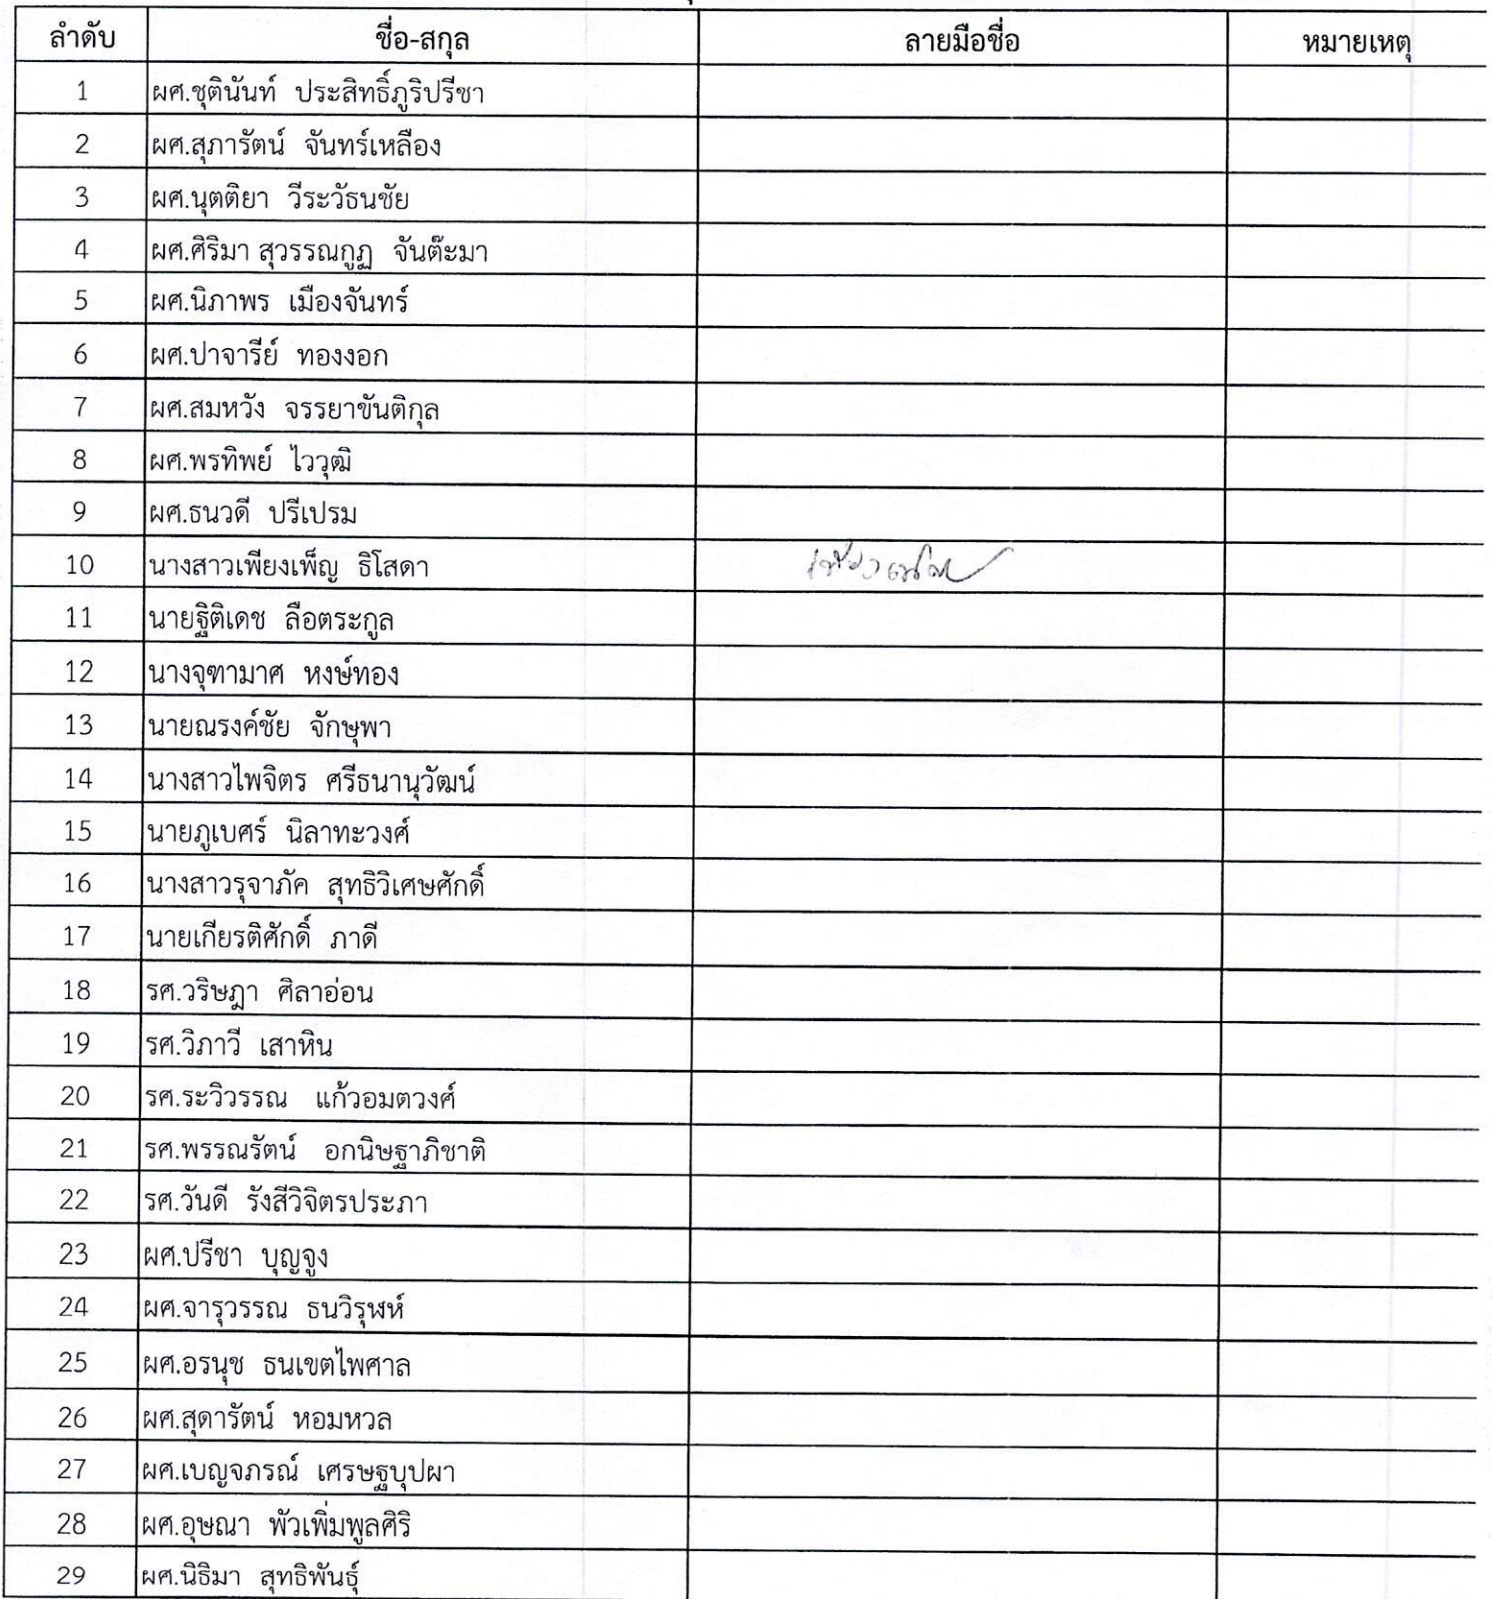 ลำดับ ชื่อ-สกุล ลายมือชื่อ หมายเหตุ
1 ผศ.ชุตินันท์ ประสิทธิ์ภูริปรีชา
2 ผศ.สุภารัตน์ จันทร์เหลือง
3 ผศ.นุตติยา วีระวัธนชัย
4 ผศ.ศิริมา สุวรรณกูฏ จันต๊ะมา
5 ผศ.นิภาพร เมืองจันทร์
6 ผศ.ปาจารีย์ ทองงอก
7 ผศ.สมหวัง จรรยาขันติกุล
8 ผศ.พรทิพย์ ไววุฒิ
9 ผศ.ธนวดี ปรีเปรม
10 นางสาวเพียงเพ็ญ ธิโสดา เพียงเพ็ญ
11 นายฐิติเดช ลือตระกูล
12 นางจุฑามาศ หงษ์ทอง
13 นายณรงค์ชัย จักษุพา
14 นางสาวไพจิตร ศรีธนานุวัฒน์
15 นายภูเบศร์ นิลาทะวงศ์
16 นางสาวรุจาภัค สุทธิวิเศษศักดิ์
17 นายเกียรติศักดิ์ ภาดี
18 รศ.วริษฎา ศิลาอ่อน
19 รศ.วิภาวี เสาหิน
20 รศ.ระวิวรรณ แก้วอมตวงศ์
21 รศ.พรรณรัตน์ อกนิษฐาภิชาติ
22 รศ.วันดี รังสีวิจิตรประภา
23 ผศ.ปรีชา บุญจูง
24 ผศ.จารุวรรณ ธนวิรุฬห์
25 ผศ.อรนุช ธนเขตไพศาล
26 ผศ.สุดารัตน์ หอมหวล
27 ผศ.เบญจภรณ์ เศรษฐบุปผา
28 ผศ.อุษณา พัวเพิ่มพูลศิริ
29 ผศ.นิธิมา สุทธิพันธุ์